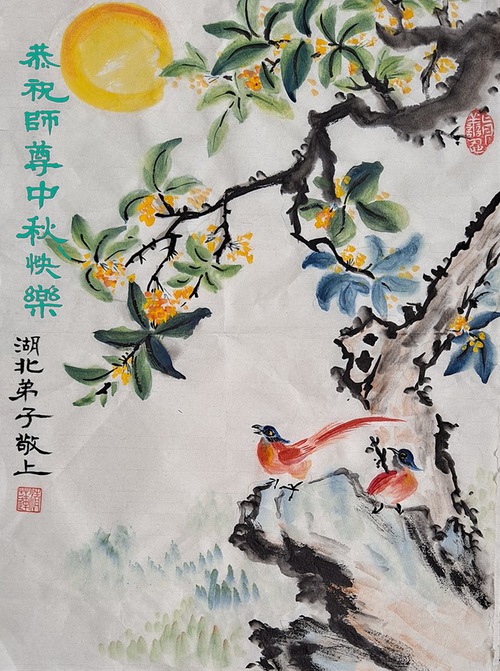 恭祝師尊中秋快樂
湖北弟子敬上